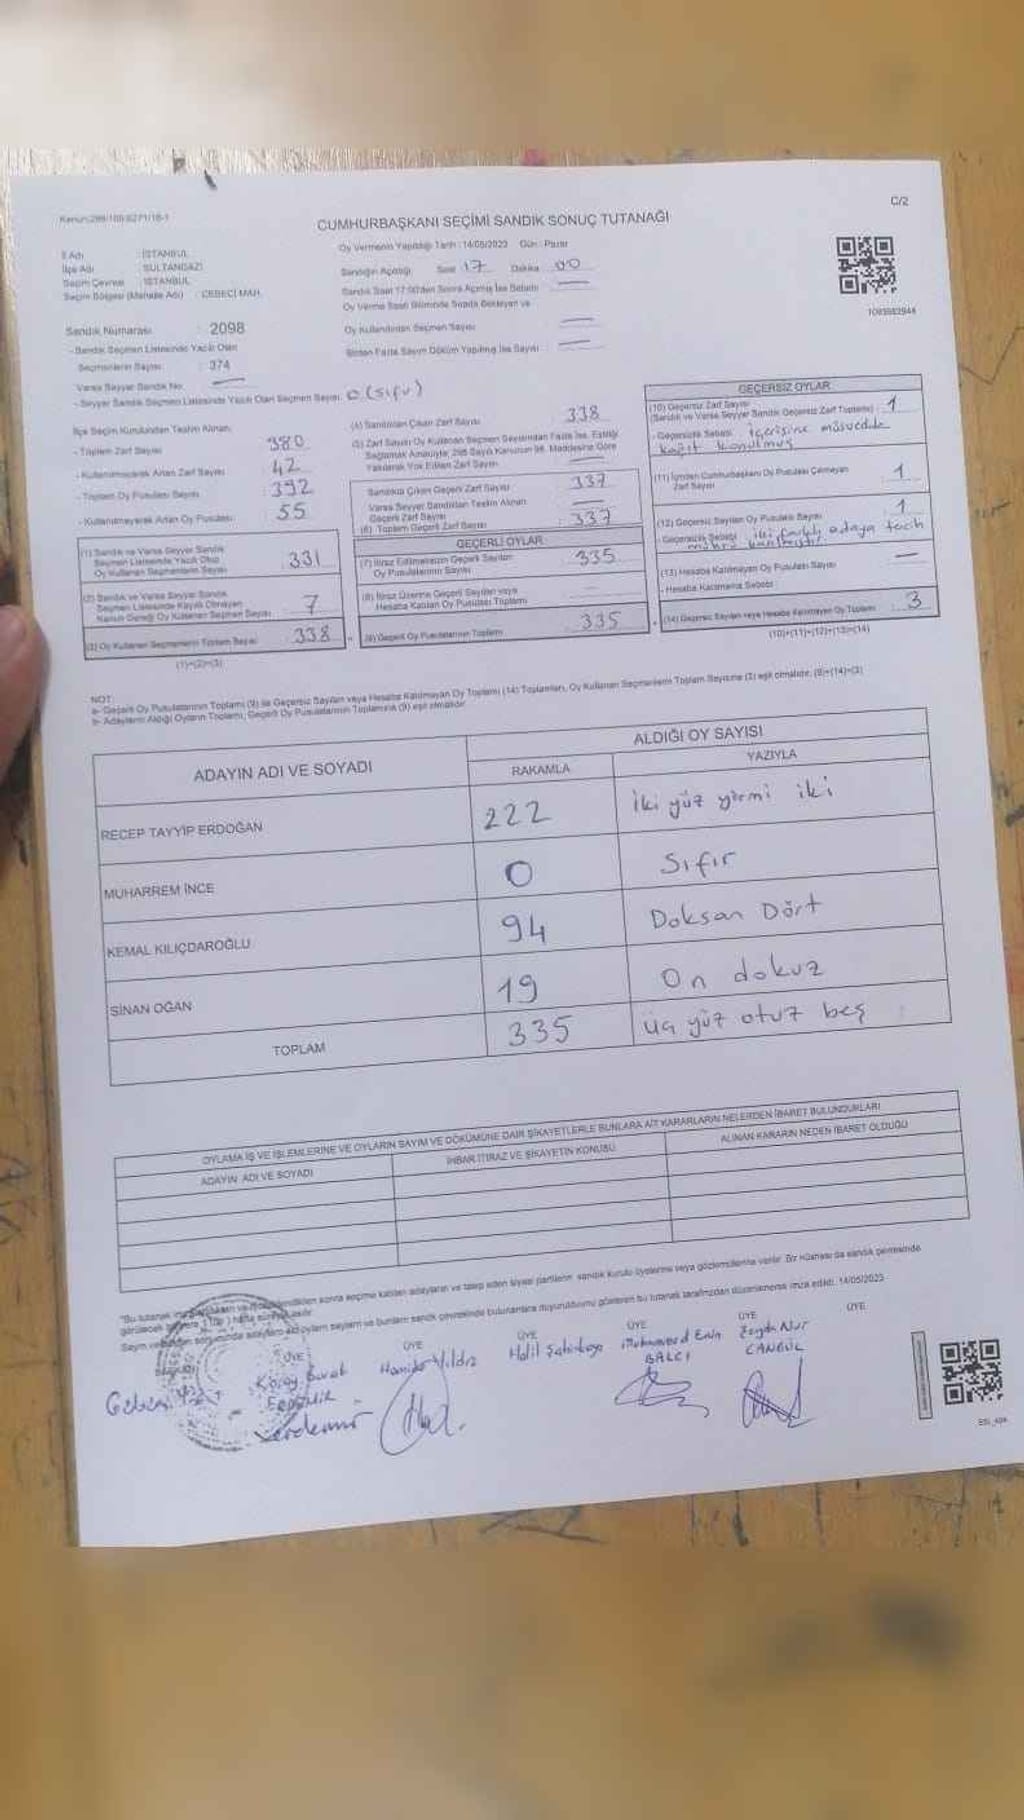 Kanun:298/100;6271/18-1
C/2
CUMHURBAŞKANI SEÇİMİ SANDIK SONUÇ TUTANAĞI
İl Adı : İSTANBUL
İlçe Adı : SULTANGAZİ
Seçim Çevresi : İSTANBUL
Seçim Bölgesi (Mahalle Adı) : CEBECİ MAH.
Oy Vermenin Yapıldığı Tarih : 14/05/2023 Gün : Pazar
Sandığın Açıldığı Saat 17 Dakika 00
Sandık Saat 17:00'den Sonra Açılmış İse Sebebi
Oy Verme Saati Bitiminde Sırada Bekleyen ve
Oy Kullandırılan Seçmen Sayısı
Birden Fazla Sayım Döküm Yapılmış İse Sayısı
Sandık Numarası : 2098
- Sandık Seçmen Listesinde Yazılı Olan
Seçmenlerin Sayısı : 374
Varsa Seyyar Sandık No
- Seyyar Sandık Seçmen Listesinde Yazılı Olan Seçmen Sayısı 0 (sıfır)
İlçe Seçim Kurulundan Teslim Alınan;
- Toplam Zarf Sayısı : 380
- Kullanılmayarak Artan Zarf Sayısı : 42
- Toplam Oy Pusulası Sayısı : 392
- Kullanılmayarak Artan Oy Pusulası : 55
(1) Sandık ve Varsa Seyyar Sandık
Seçmen Listesinde Yazılı Olup
Oy Kullanan Seçmenlerin Sayısı : 331
(2) Sandık ve Varsa Seyyar Sandık
Seçmen Listesinde Kayıtlı Olmayan
Kanun Gereği Oy Kullanan Seçmen Sayısı : 7
(3) Oy Kullanan Seçmenlerin Toplam Sayısı : 338
(1)+(2)=(3)
(4) Sandıktan Çıkan Zarf Sayısı : 338
(5) Zarf Sayısı Oy Kullanan Seçmen Sayısından Fazla İse, Eşitliği
Sağlamak Amacıyla; 298 Sayılı Kanunun 98. Maddesine Göre
Yakılarak Yok Edilen Zarf Sayısı
Sandıkta Çıkan Geçerli Zarf Sayısı : 337
Varsa Seyyar Sandıktan Teslim Alınan
Geçerli Zarf Sayısı
(6) Toplam Geçerli Zarf Sayısı : 337
GEÇERLİ OYLAR
(7) İtiraz Edilmeksizin Geçerli Sayılan
Oy Pusulalarının Sayısı : 335
(8) İtiraz Üzerine Geçerli Sayılan veya
Hesaba Katılan Oy Pusulası Toplamı
(9) Geçerli Oy Pusulalarının Toplamı : 335
GEÇERSİZ OYLAR
(10) Geçersiz Zarf Sayısı
(Sandık ve Varsa Seyyar Sandık Geçersiz Zarf Toplamı) : 1
- Geçersizlik Sebebi : içerisine müsvedde
kağıt konulmuş
(11) İçinden Cumhurbaşkanı Oy Pusulası Çıkmayan
Zarf Sayısı : 1
(12) Geçersiz Sayılan Oy Pusulası Sayısı : 1
- Geçersizlik Sebebi : iki farklı adaya tercih
mührü
(13) Hesaba Katılmayan Oy Pusulası Sayısı
- Hesaba Katılmama Sebebi
(14) Geçersiz Sayılan veya Hesaba Katılmayan Oy Toplamı : 3
(10)+(11)+(12)+(13)=(14)
NOT:
a- Geçerli Oy Pusulalarının Toplamı (9) ile Geçersiz Sayılan veya Hesaba Katılmayan Oy Toplamı (14) Toplamları, Oy Kullanan Seçmenlerin Toplam Sayısına (3) eşit olmalıdır. (9)+(14)=(3)
b- Adayların Aldığı Oyların Toplamı, Geçerli Oy Pusulalarının Toplamına (9) eşit olmalıdır.
ADAYIN ADI VE SOYADI
ALDIĞI OY SAYISI
RAKAMLA YAZIYLA
RECEP TAYYİP ERDOĞAN 222 iki yüz yirmi iki
MUHARREM İNCE 0 Sıfır
KEMAL KILIÇDAROĞLU 94 Doksan Dört
SİNAN OĞAN 19 On dokuz
TOPLAM 335 üç yüz otuz beş
OYLAMA İŞ VE İŞLEMLERİNE VE OYLARIN SAYIM VE DÖKÜMÜNE DAİR ŞİKAYETLERLE BUNLARA AİT KARARLARIN NELERDEN İBARET BULUNDUKLARI
ADAYIN ADI VE SOYADI İHBAR İTİRAZ VE ŞİKAYETİN KONUSU ALINAN KARARIN NEDEN İBARET OLDUĞU
sonra seçime katılan adayların ve talep eden siyasi partilerin sandık kurulu üyelerine veya gözlemcilerine verilir. Bir nüshası da sandık çevresinde
bu tutanak tarafımızdan düzenlenerek imza edildi. 14/05/2023
ÜYE ÜYE ÜYE ÜYE ÜYE ÜYE
Halil
BALCI
Zeyda Nur